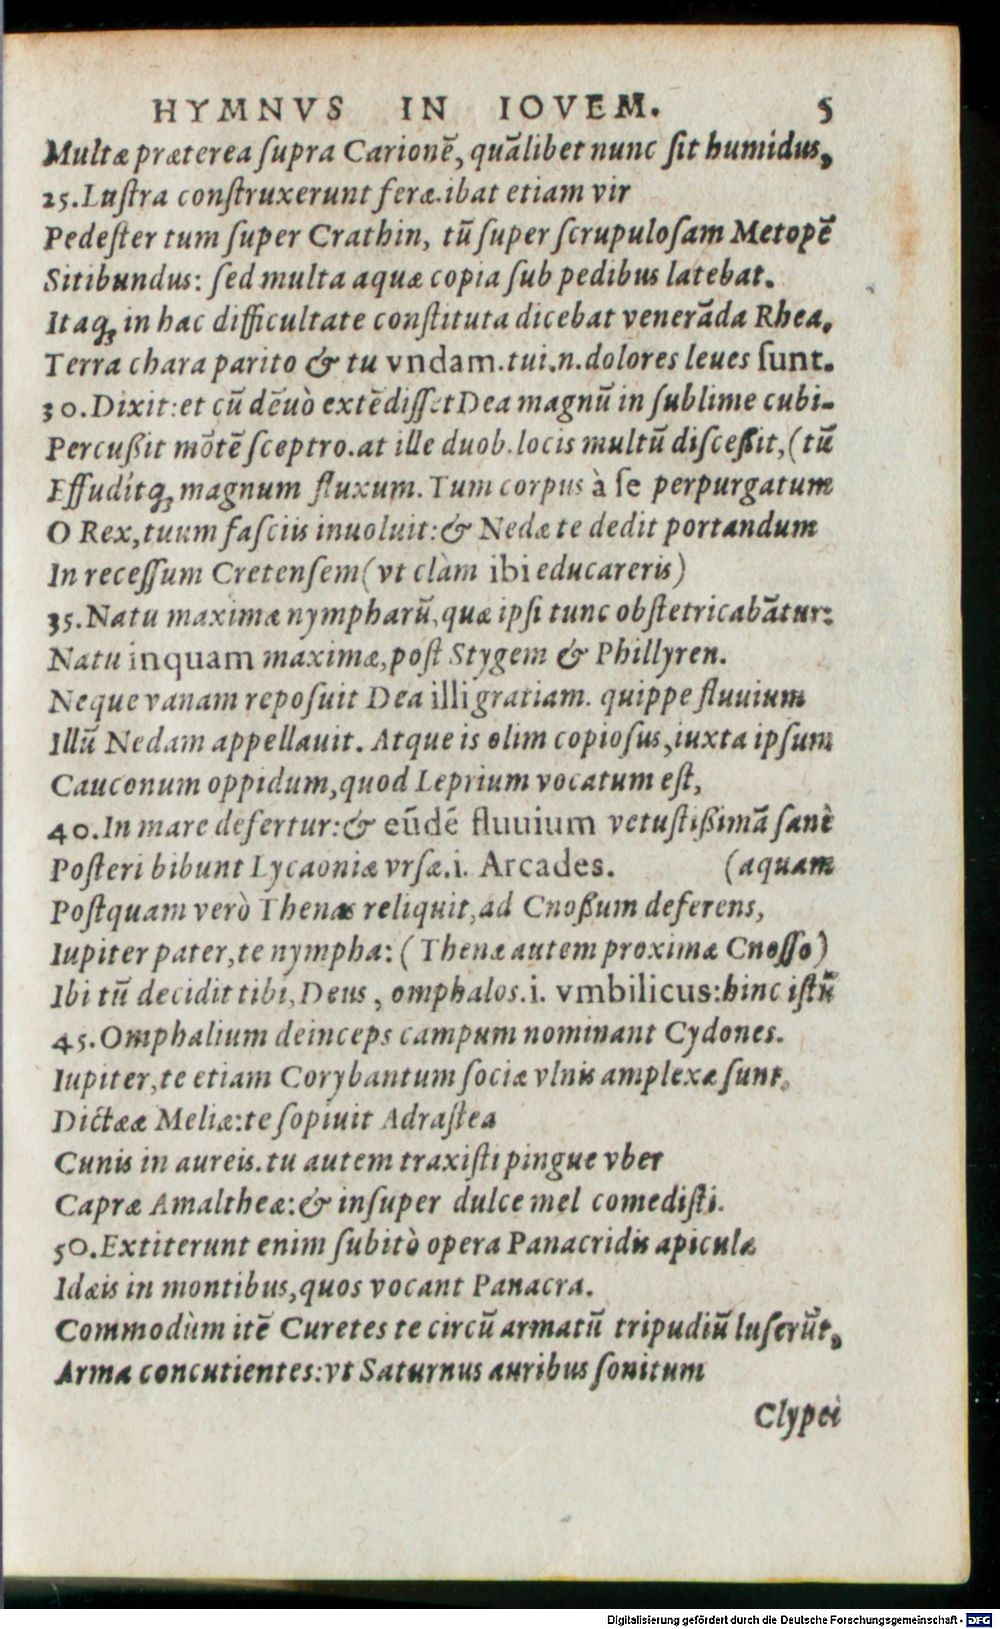 HYMNVS IN IOVEM. 5
Multæ præterea ſupra Carionẽ, quãlibet nunc ſit humidus,
25. Luſtra conſtruxerunt feræ. ibat etiam vir
Pedeſter tum ſuper Crathin, tũ ſuper ſcrupuloſam Metopẽ
Sitibundus: ſed multa aquæ copia ſub pedibus latebat.
Itaq; in hac difficultate conſtituta dicebat venerãda Rhea,
Terra chara parito & tu vndam. tui. n. dolores leues ſunt.
30. Dixit: et cũ dẽuò extẽdiſſet Dea magnũ in ſublime cubi-
Percußit mõtẽ ſceptro. at ille duob. locis multũ diſceßit, (tũ
Effudítq; magnum fluxum. Tum corpus à ſe perpurgatum
O Rex, tuum faſciis inuoluit: & Nedæ te dedit portandum
In receſſum Cretenſem (vt clàm ibi educareris)
35. Natu maximæ nympharũ, quæ ipſi tunc obſtetricabãtur:
Natu inquam maximæ, poſt Stygem & Phillyren.
Neque vanam repoſuit Dea illi gratiam. quippe fluuium
Illũ Nedam appellauit. Atque is olim copioſus, iuxta ipſum
Cauconum oppidum, quod Leprium vocatum eſt,
40. In mare defertur: & eũdẽ fluuium vetuſtißimã ſanè
Poſteri bibunt Lycaoniæ vrſæ. i. Arcades. (aquam
Poſtquam verò Thenas reliquit, ad Cnoßum deferens,
Iupiter pater, te nympha: (Thenæ autem proximæ Cnoſſo)
Ibi tũ decidit tibi, Deus, omphalos. i. vmbilicus: hinc iſtũ
45. Omphalium deinceps campum nominant Cydones.
Iupiter, te etiam Corybantum ſociæ vlnis amplexæ ſunt,
Dictææ Meliæ: te ſopiuit Adraſtea
Cunis in aureis. tu autem traxiſti pingue vber
Capræ Amaltheæ: & inſuper dulce mel comediſti.
50. Extiterunt enim ſubitò opera Panacridis apiculæ
Idæis in montibus, quos vocant Panacra.
Commodùm itẽ Curetes te circũ armatũ tripudiũ luſerũt,
Arma concutientes: vt Saturnus auribus ſonitum
Clypei
Digitalisierung gefördert durch die Deutsche Forschungsgemeinschaft - DFG